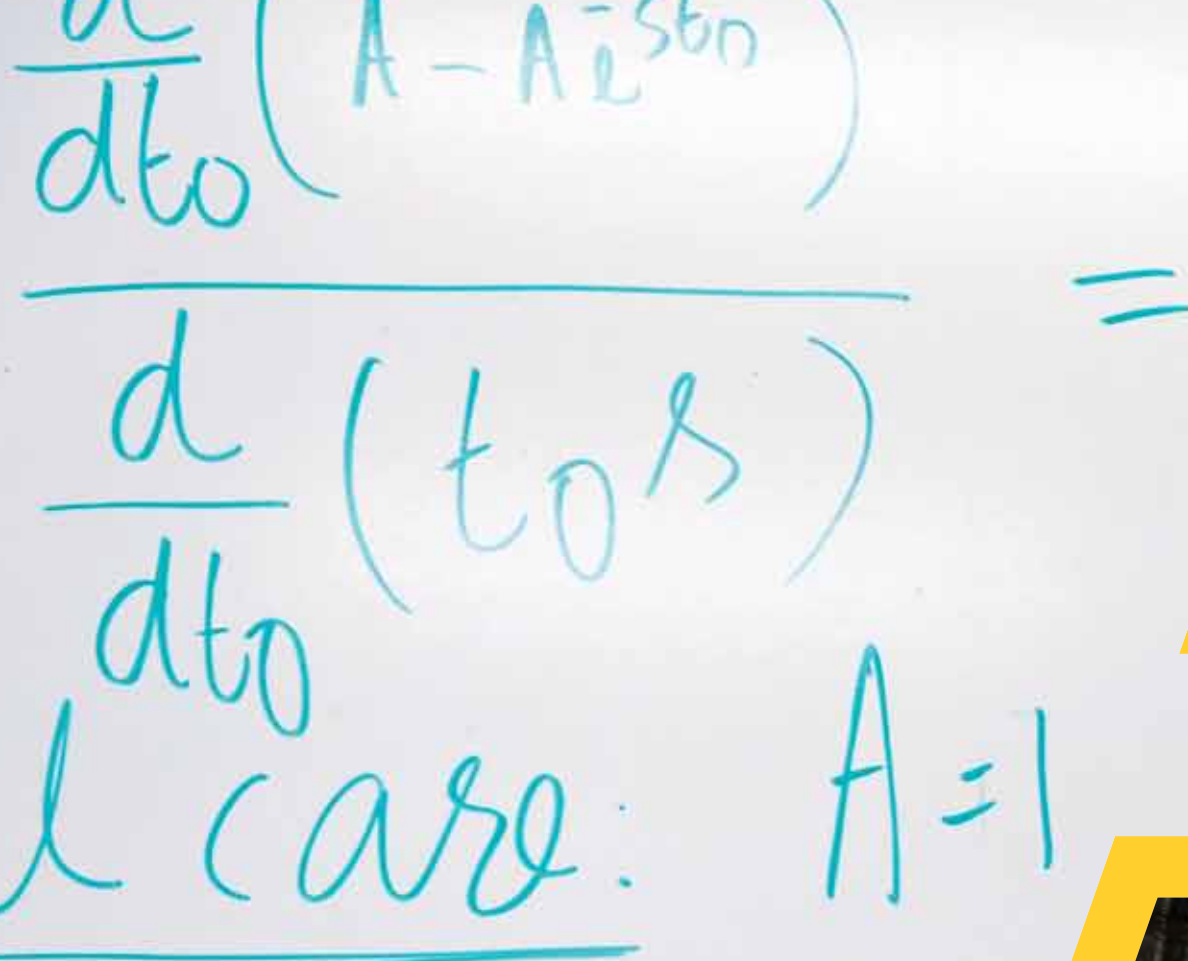 d/dt₀ (A - Ae^-st₀)
=
d/dt₀ (t₀s)
l case: A=1